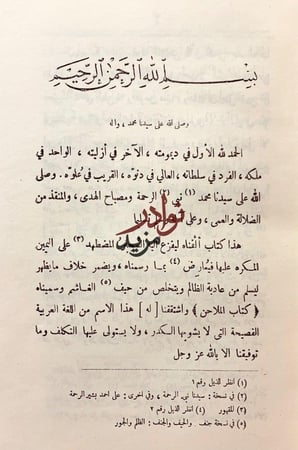 بسم الله الرحمن الرحيم
وصلى الله على سيدنا محمد ، وآله
الحمد لله الأول في ديمومته ، الآخر في أزليته ، الواحد في
ملكه ، الفرد في سلطانه ، العالي في دنوّه ، القريب في عُلوّه . وصلى
الله على سيدنا محمد (١) نبيّ (٢) الرحمة ومصباح الهدى ، والمنقذ من
الضلالة والعمى ، وعلى
نوادر
مزيد
هذا كتاب ألفناه ليفزع المضطهد (٣) على اليمين
المكره عليها فيعارض (٤) بما رسمناه ، ويضمر خلاف ما يظهر
ليسلم من عادية الظالم ويتخلص من حيف (٥) الغاشم وسميناه
﴿ كتاب الملاحن ﴾ واشتققنا [ له ] هذا الاسم من اللغة العربية
الفصيحة التي لا يشوبها الكدر ، ولا يستولي عليها التكلف وما
توفيقنا الا بالله عز وجل
(١) انظر الذيل رقم ١
(٢) في نسخة : سيدنا نبي الرحمة ، وفي اخرى : على احمد بشير الرحمة
(٣) المقهور (٤) انظر الذيل رقم ٢
(٥) في نسخة جنف والحيف والجنف : الظلم والجور